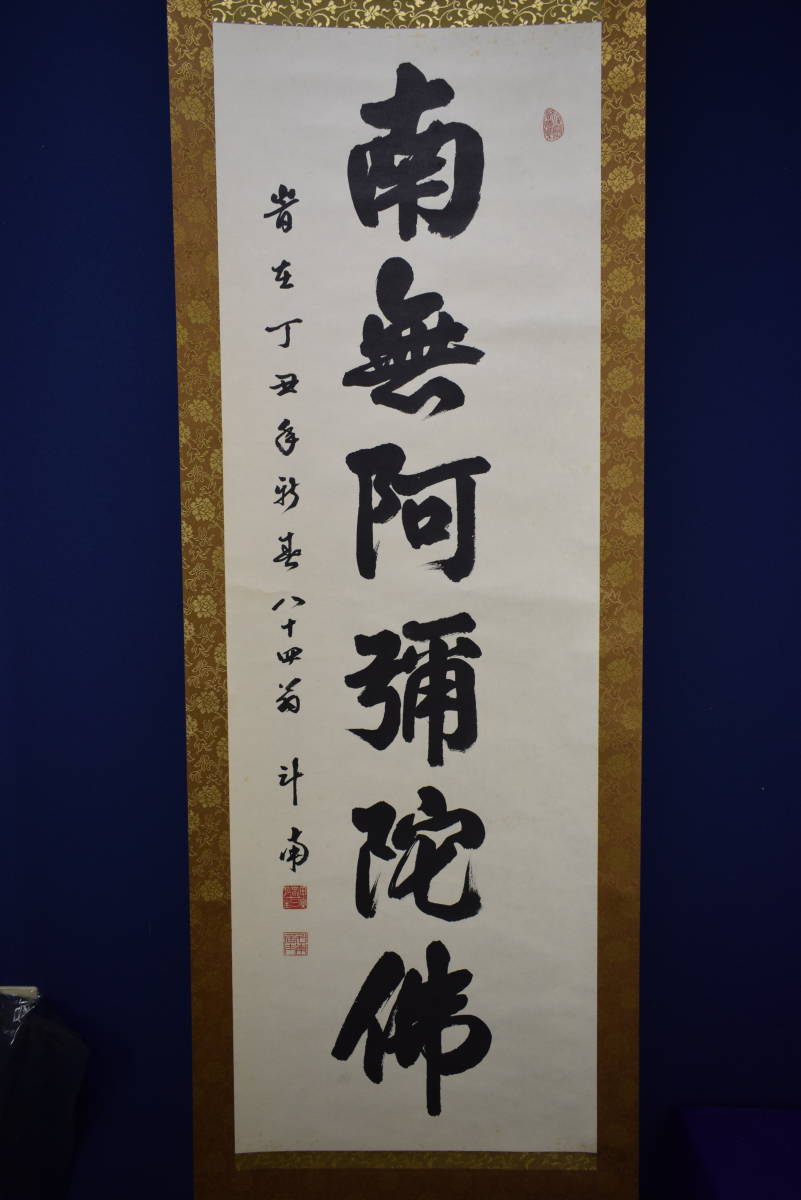 南無阿彌陀佛
旹在丁丑年新春八十四翁 斗南